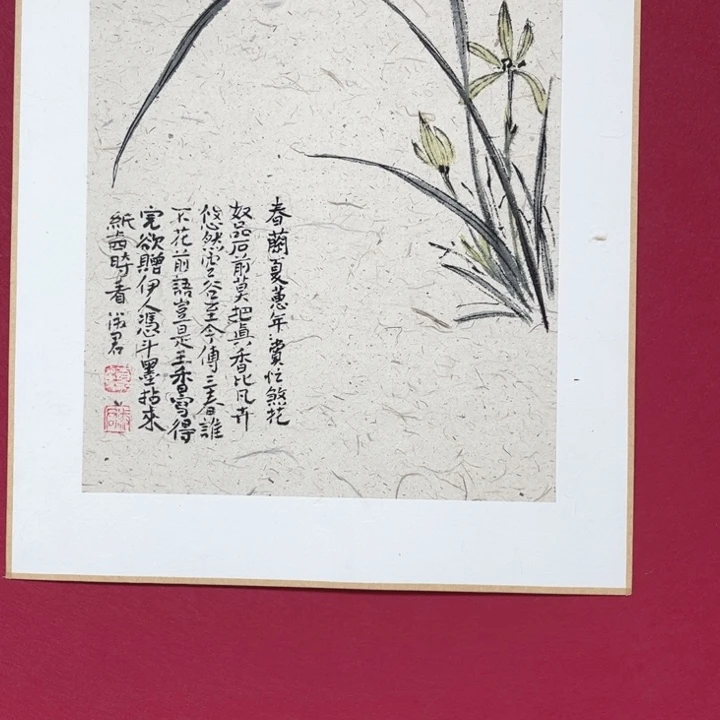 春蘭夏蕙年賞忙煞花
奴品石前莫把眞香比凡卉
悠然空谷至今傳三春誰
不花前語豈是王香寫得
完欲贈伊人憑斗墨拈來
紙時看 君